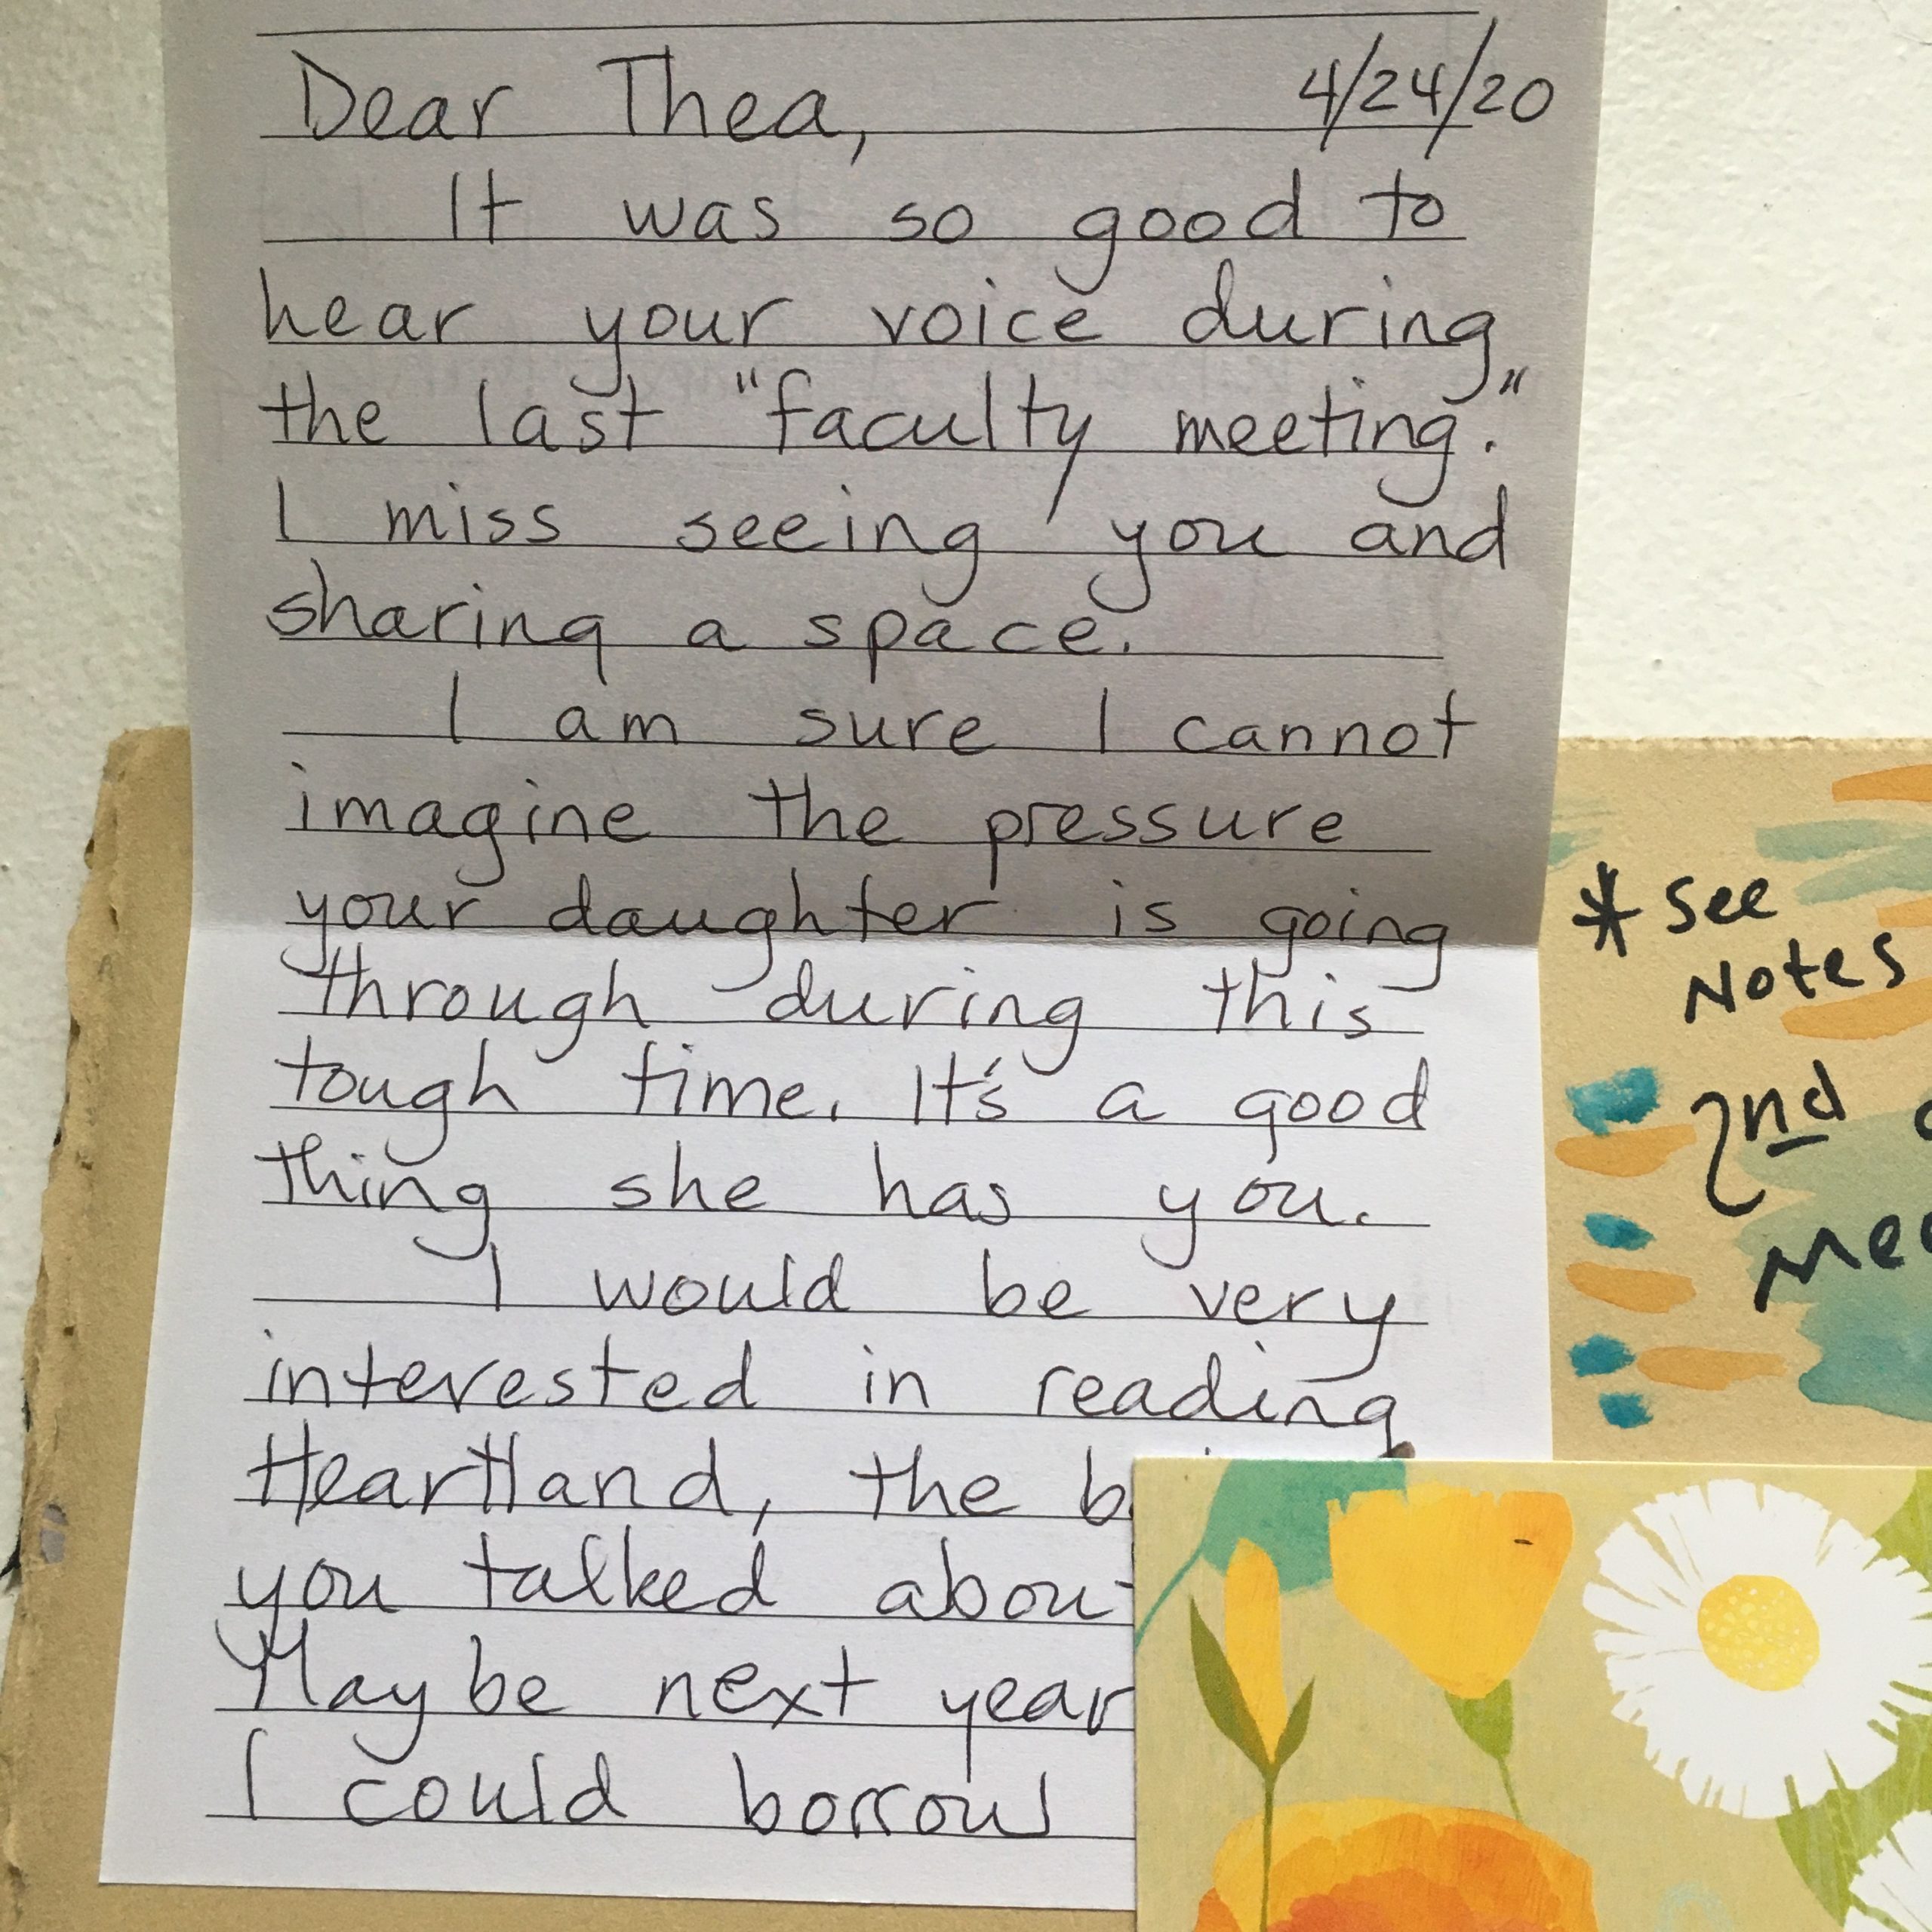 Dear Thea, 4/24/20
It was so good to
hear your voice during
the last "faculty meeting."
I miss seeing you and
sharing a space.
I am sure I cannot
imagine the pressure
your daughter is going
through during this
tough time. It's a good
thing she has you.
I would be very
interested in reading
Heartland, the
you talked
Maybe next year
I could borrow
* See
Notes
2nd